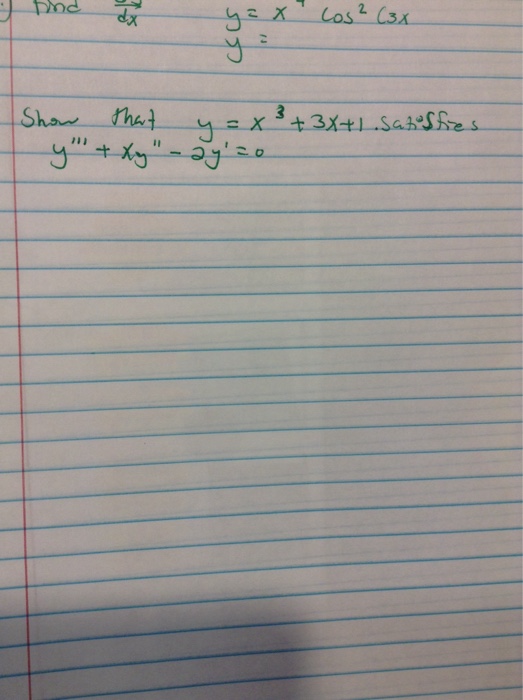 Find dy/dx y = x⁴ cos² (3x
y =
Show that y = x³ + 3x + 1 . Satisfies
y''' + xy'' - 2y' = 0